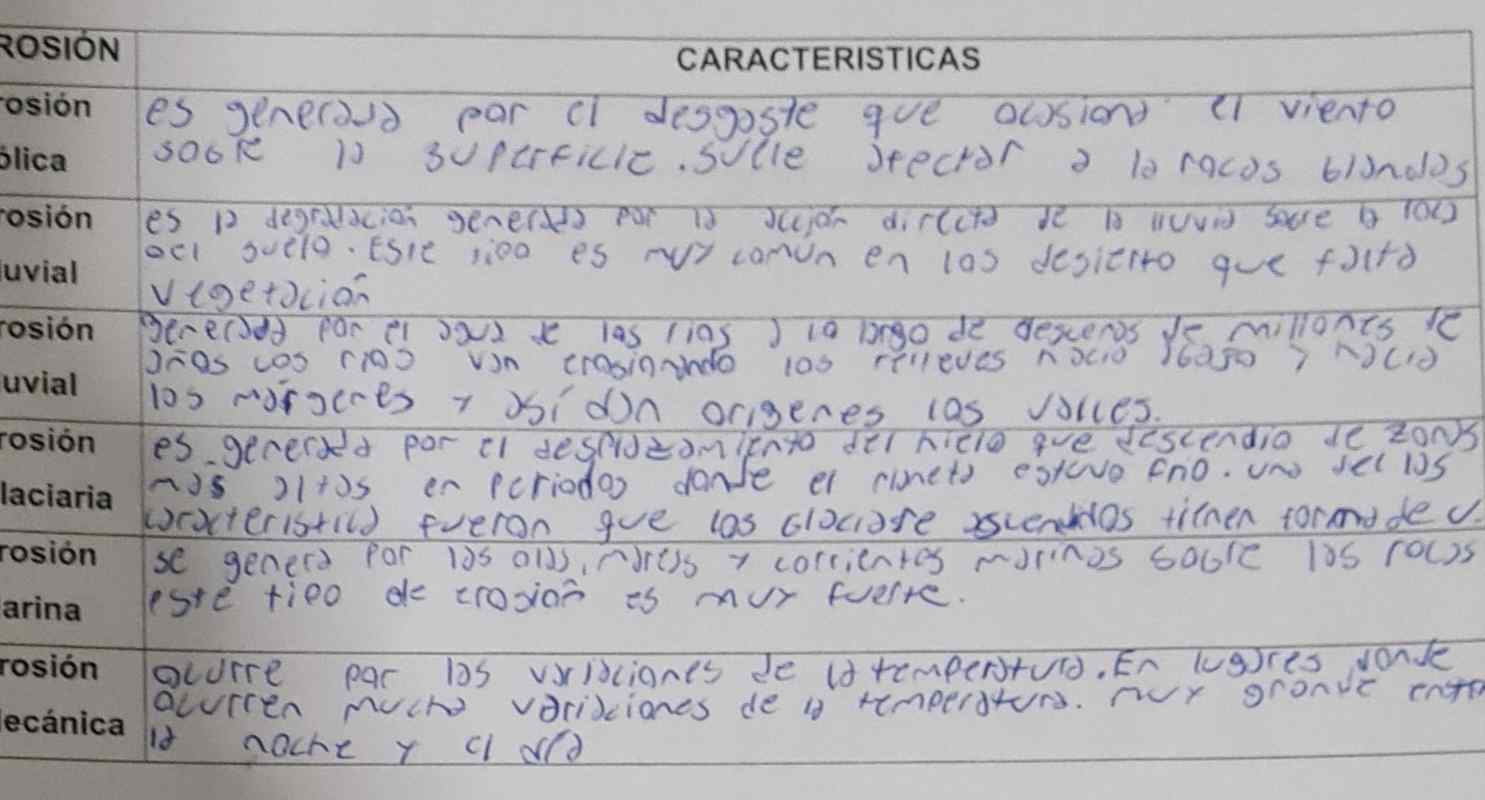 ROSIÓN CARACTERISTICAS
rosión es generada por el desgaste que ocasiona el viento
ólica sobre la superficie. suele afectar a la rocas blandas
rosión es la degradación generada por la acción directa de la lluvia sobre la roca
del suelo. Este tipo es muy común en los desierto que falta
luvial
vegetación
rosión generada por el agua de los rios a lo largo de de millones de
años los rios van erosionando los relieves hacia abajo y hacia
luvial los márgenes y así dan origenes los valles.
rosión es generada por el desplazamiento del hielo que descendio de zonas
laciaria mas altas en periodos donde el planeta estuvo frio. una del las
caracteristica fueron que los Glaciare tienen forma de U.
rosión se genera por las olas, mareas y corrientes marinas sobre las rocas
arina este tipo de erosión es muy fuerte.
rosión ocurre por las variaciones de la temperatura. En lugares donde
ocurren mucha variaciones de la temperatura. muy grande entre
ecánica la noche y el día